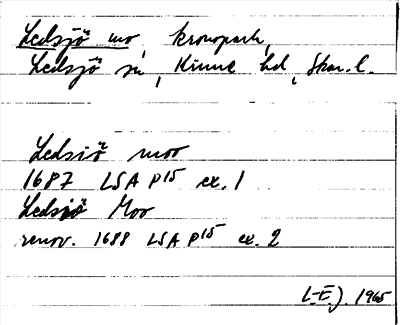 Ledsjö mo, kronopark,
Ledsjö sn, Kinne hd, Skar. l.
Ledsiö moo
1687 LSA P15 ex. 1
Ledsiö Moo
renov. 1688 LSA P15 ex. 2
L-E.J. 1965